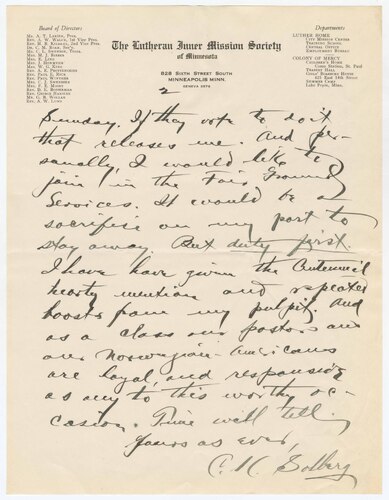 Board of Directors
Departments
The Lutheran Inner Mission Society
of Minnesota
828 SIXTH STREET SOUTH
MINNEAPOLIS MINN.
LUTHER HOME
CITY MISSION CENTER
TRAINING SCHOOL
CENTRAL OFFICE
EMPLOYMENT BUREAU
COLONY OF MERCY
CHILDREN'S HOME
2
Sunday. If they vote to do it
that releases me. And per-
sonally, I would like to
join in the Fair Ground
Services. It would be a
sacrifise on my part to
stay away. But duty first.
I have have given the Centennial
hearty mention and repeated
boosts from my pulpit. And
as a class our pastors and
our Norwegian-Americans
are loyal, and responsive
as any to this worthy oc-
casion. Time will tell.
Yours as ever,
C. K. Solberg